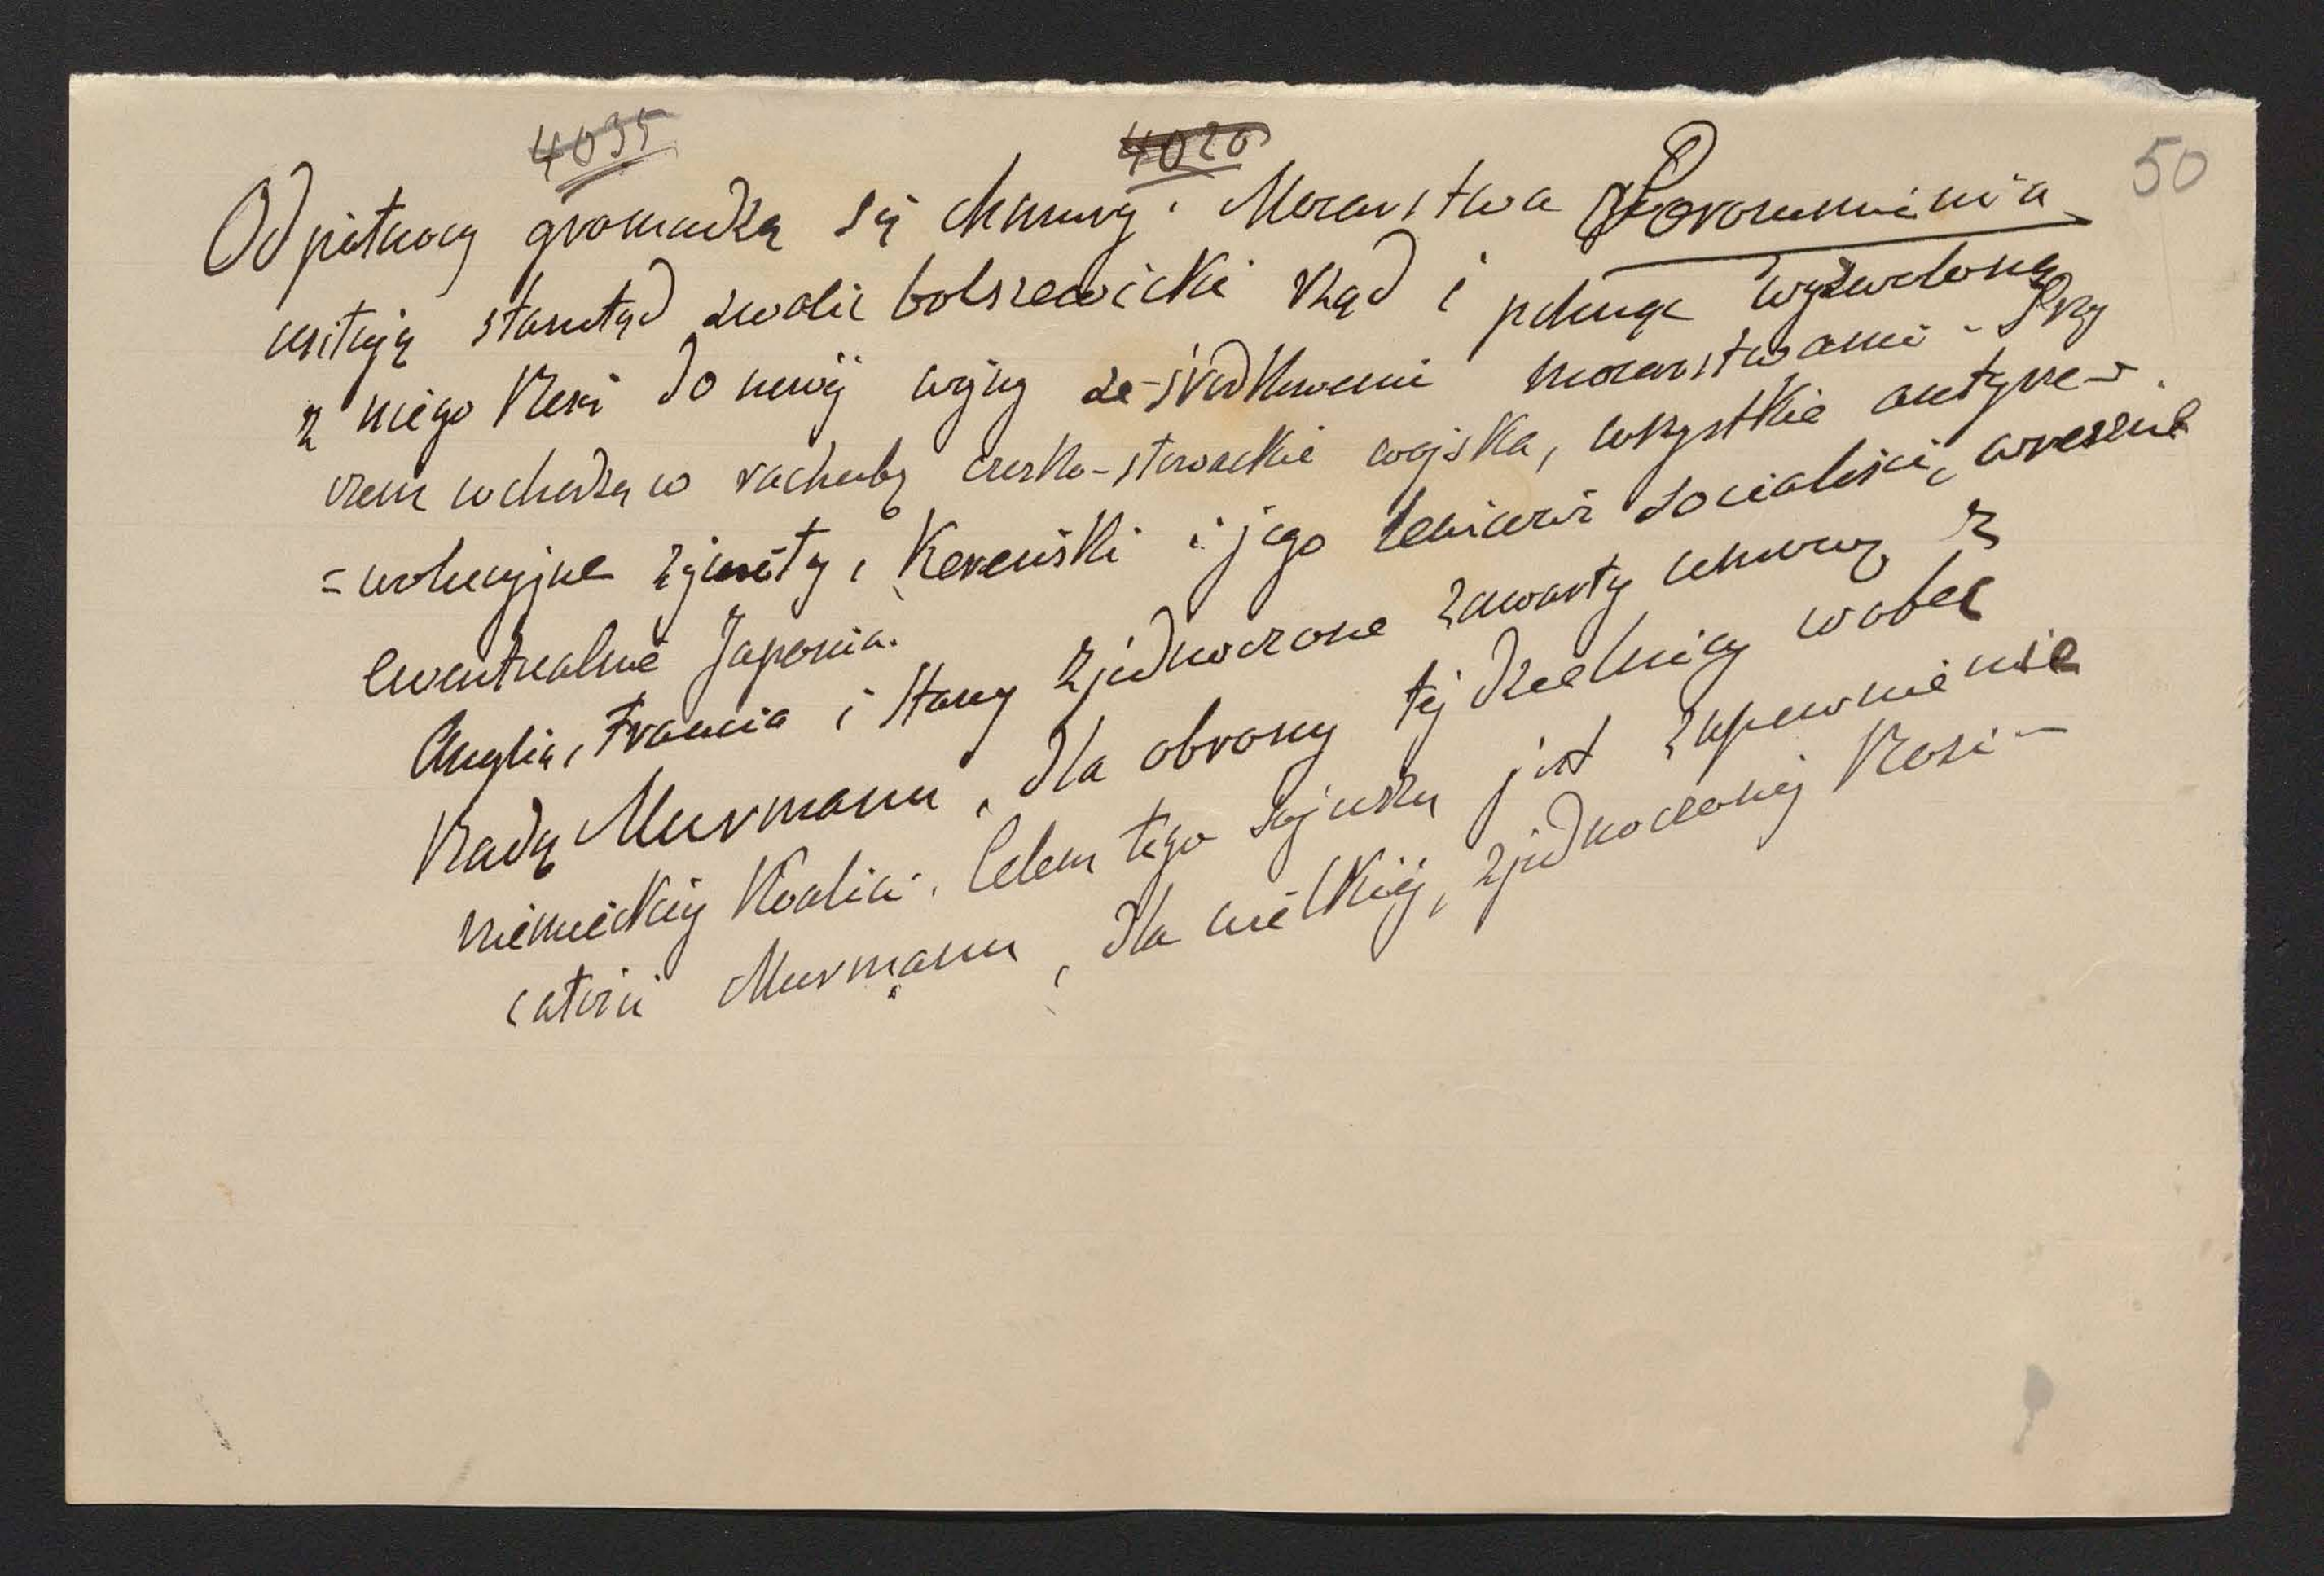 4035 4020 50
Od północy gromadzą się chmury. Mocarstwa Porozumienia
usiłują stamtąd zwalić bolszewicki rząd i pchnąć wyzwoloną
z niego Rosię do nowej wojny ze środkowemi mocarstwami. Przy
czem wchodzą w rachubę czesko-słowackie wojska, wszystkie antyre-
=wolucyjne żywioły, Kerenski i jego lewicowi socialiści, wreszcie
ewentualnie Japonia.
Anglia, Francia i Stany Zjednoczone zawarły umowę z
Radą Murmanu, dla obrony tej dzielnicy wobec
niemieckiej Koalici. Celem tego sojuszu jest zapewnienie
całości Murmanu, dla wielkiej, zjednoczonej Rosi-